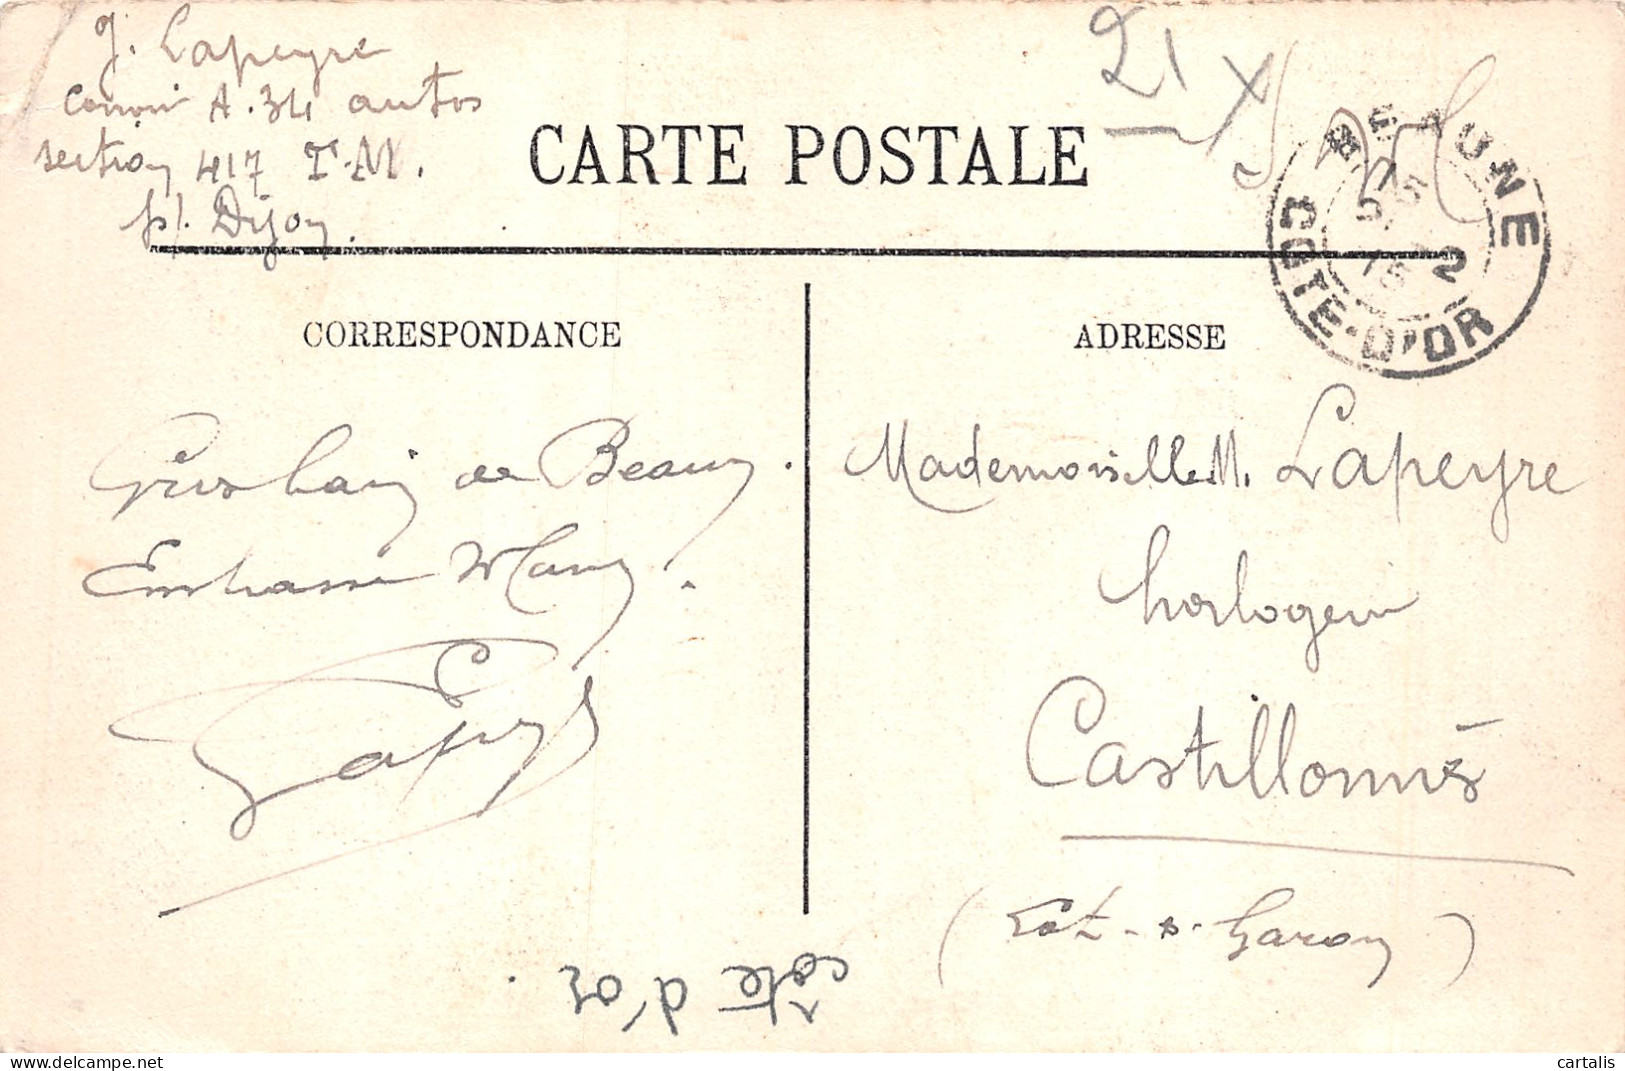 J. Lapeyre
convoi A. 34 autos
section 417 T.M.
pl. Dijon.
21
CARTE POSTALE
BEAUNE
2
COTE-D'OR
CORRESPONDANCE
ADRESSE
de Beaune.
Embrasse Many.
Lapeyre
Mademoiselle M. Lapeyre
horlogerie
Castillonnès
(Lot-&-Garonne)
côte d'or.
cartalis